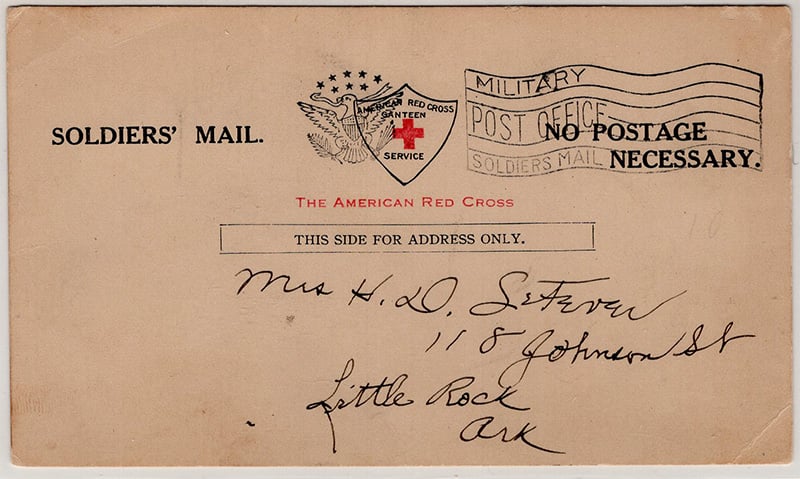 SOLDIERS' MAIL.
AMERICAN RED CROSS
CANTEEN
SERVICE
MILITARY
POST OFFICE
SOLDIERS MAIL
NO POSTAGE
NECESSARY.
THE AMERICAN RED CROSS
THIS SIDE FOR ADDRESS ONLY.
Mrs H. D. LeFever
118 Johnson St
Little Rock
Ark